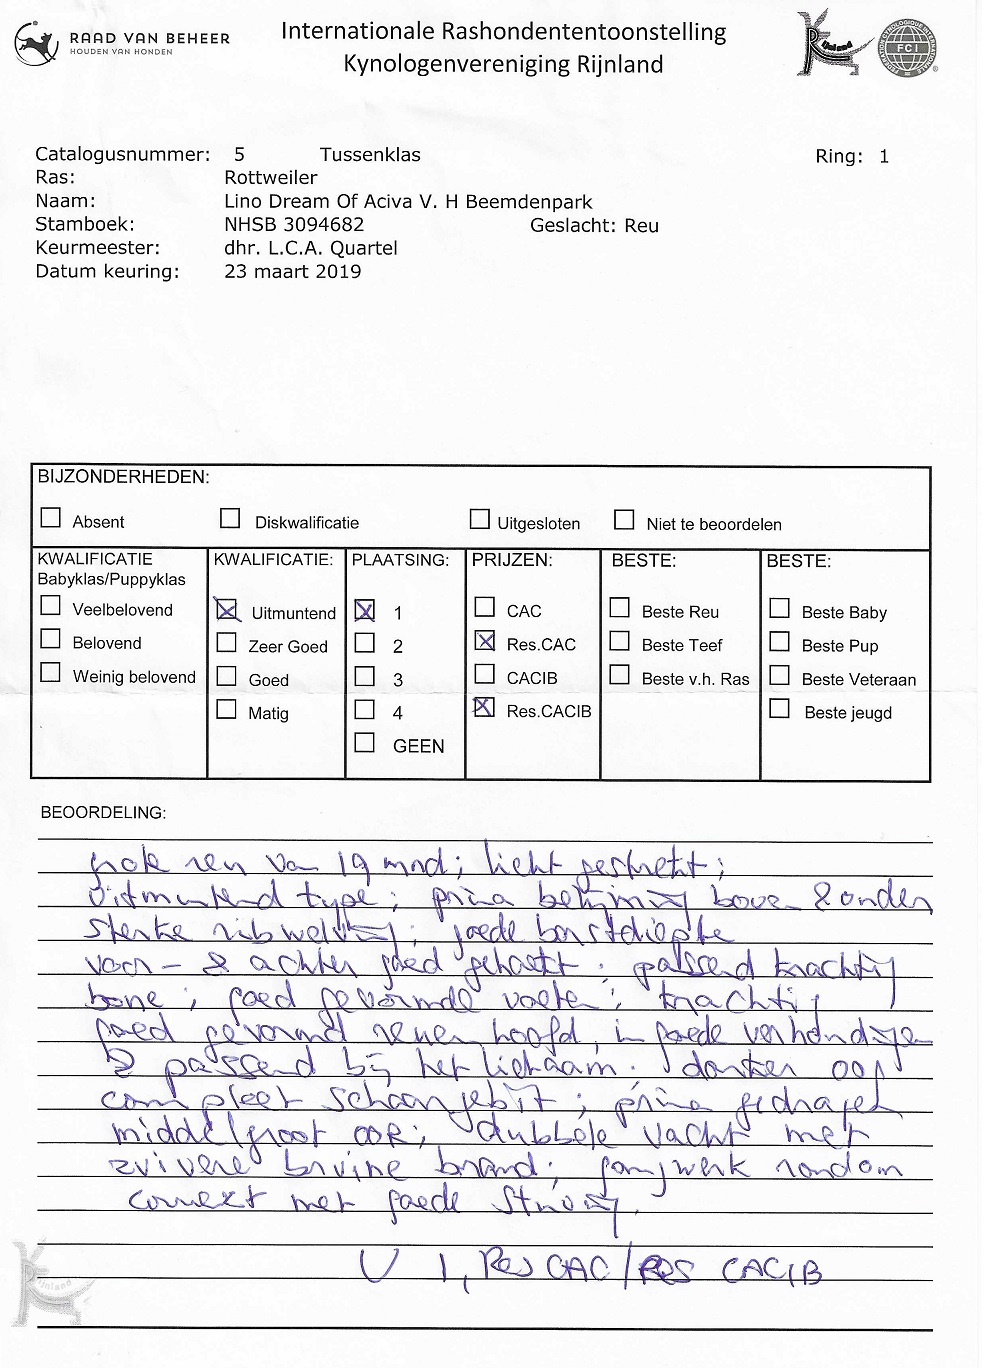 RAAD VAN BEHEER
HOUDEN VAN HONDEN
Internationale Rashondententoonstelling
Kynologenvereniging Rijnland
Rijnland
FCI
Catalogusnummer: 5 Tussenklas Ring: 1
Ras: Rottweiler
Naam: Lino Dream Of Aciva V. H Beemdenpark
Stamboek: NHSB 3094682 Geslacht: Reu
Keurmeester: dhr. L.C.A. Quartel
Datum keuring: 23 maart 2019
BIJZONDERHEDEN:
Absent Diskwalificatie Uitgesloten Niet te beoordelen
KWALIFICATIE KWALIFICATIE: PLAATSING: PRIJZEN: BESTE: BESTE:
Babyklas/Puppyklas
Veelbelovend Uitmuntend 1 CAC Beste Reu Beste Baby
Belovend Zeer Goed 2 Res.CAC Beste Teef Beste Pup
Weinig belovend Goed 3 CACIB Beste v.h. Ras Beste Veteraan
Matig 4 Res.CACIB Beste jeugd
GEEN
BEOORDELING:
grote reu van 19 mnd; licht gestrekt;
Uitmuntend type; prima belijning boven & onder
sterke ribwelving; goede borstdiepte
voor- & achter goed gehoekt; passend krachtig
bone; goed gevormde voeten; krachtig
goed gevormd reuen hoofd, in goede verhoudingen
& passend bij het lichaam; donker oog
compleet schaargebit; prima gedragen
middelgroot oor; dubbele vacht met
zuivere bruine brand; gangwerk rondom
correct met goede stuwing.
U 1, Res CAC/RES CACIB
Rijnland